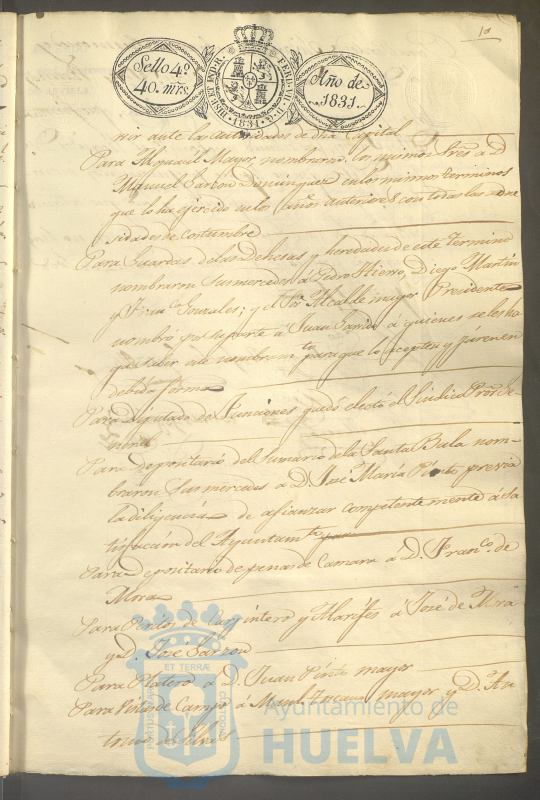 10
Sello 4º
40. mrs.
HISP. ET IND. R.
FERD. VII. D. G.
1831
Año de
1831.
nir ante las autoridades de dha Capital
Para Alguacil Mayor nombraron los mismos Sres á D.
Manuel Garzon Dominguez en los mismos terminos
que lo ha ejercido en los años anteriores con todas las
sidades de costumbre
Para Guardas de las Dehesas y heredades de este Termino
nombraron Sus mercedes á Pedro Hierro, Diego Martin
y Franco Gonzales; y el Sor Alcalde mayor Presidente
nombró por su parte á Juan Garrido á quienes se les ha
que saber este nombramto para que lo acepten y juren en
debida forma
Para Diputado de Funciones quedó electo el Sindico Pror Ge-
neral
Para depositario del Sumario de la Santa Bula nom-
braron Sus mercedes a D. José María Pinto previa
la diligencia de afianzar competentemente á sa
tisfaccion del Ayuntamto
Para Depositario de penas de Camara á D. Franco de
Mora
Para Peritos de Carpintero y Alarifes á José de Mora
y D. José Garzon
Para Platero á D. Juan Pinto mayor
Para Vistas de Campo á Manl mayor y D. An
tonio de
PORTUS MARIS
ET TERRÆ
CUSTODIA
Ayuntamiento de
HUELVA